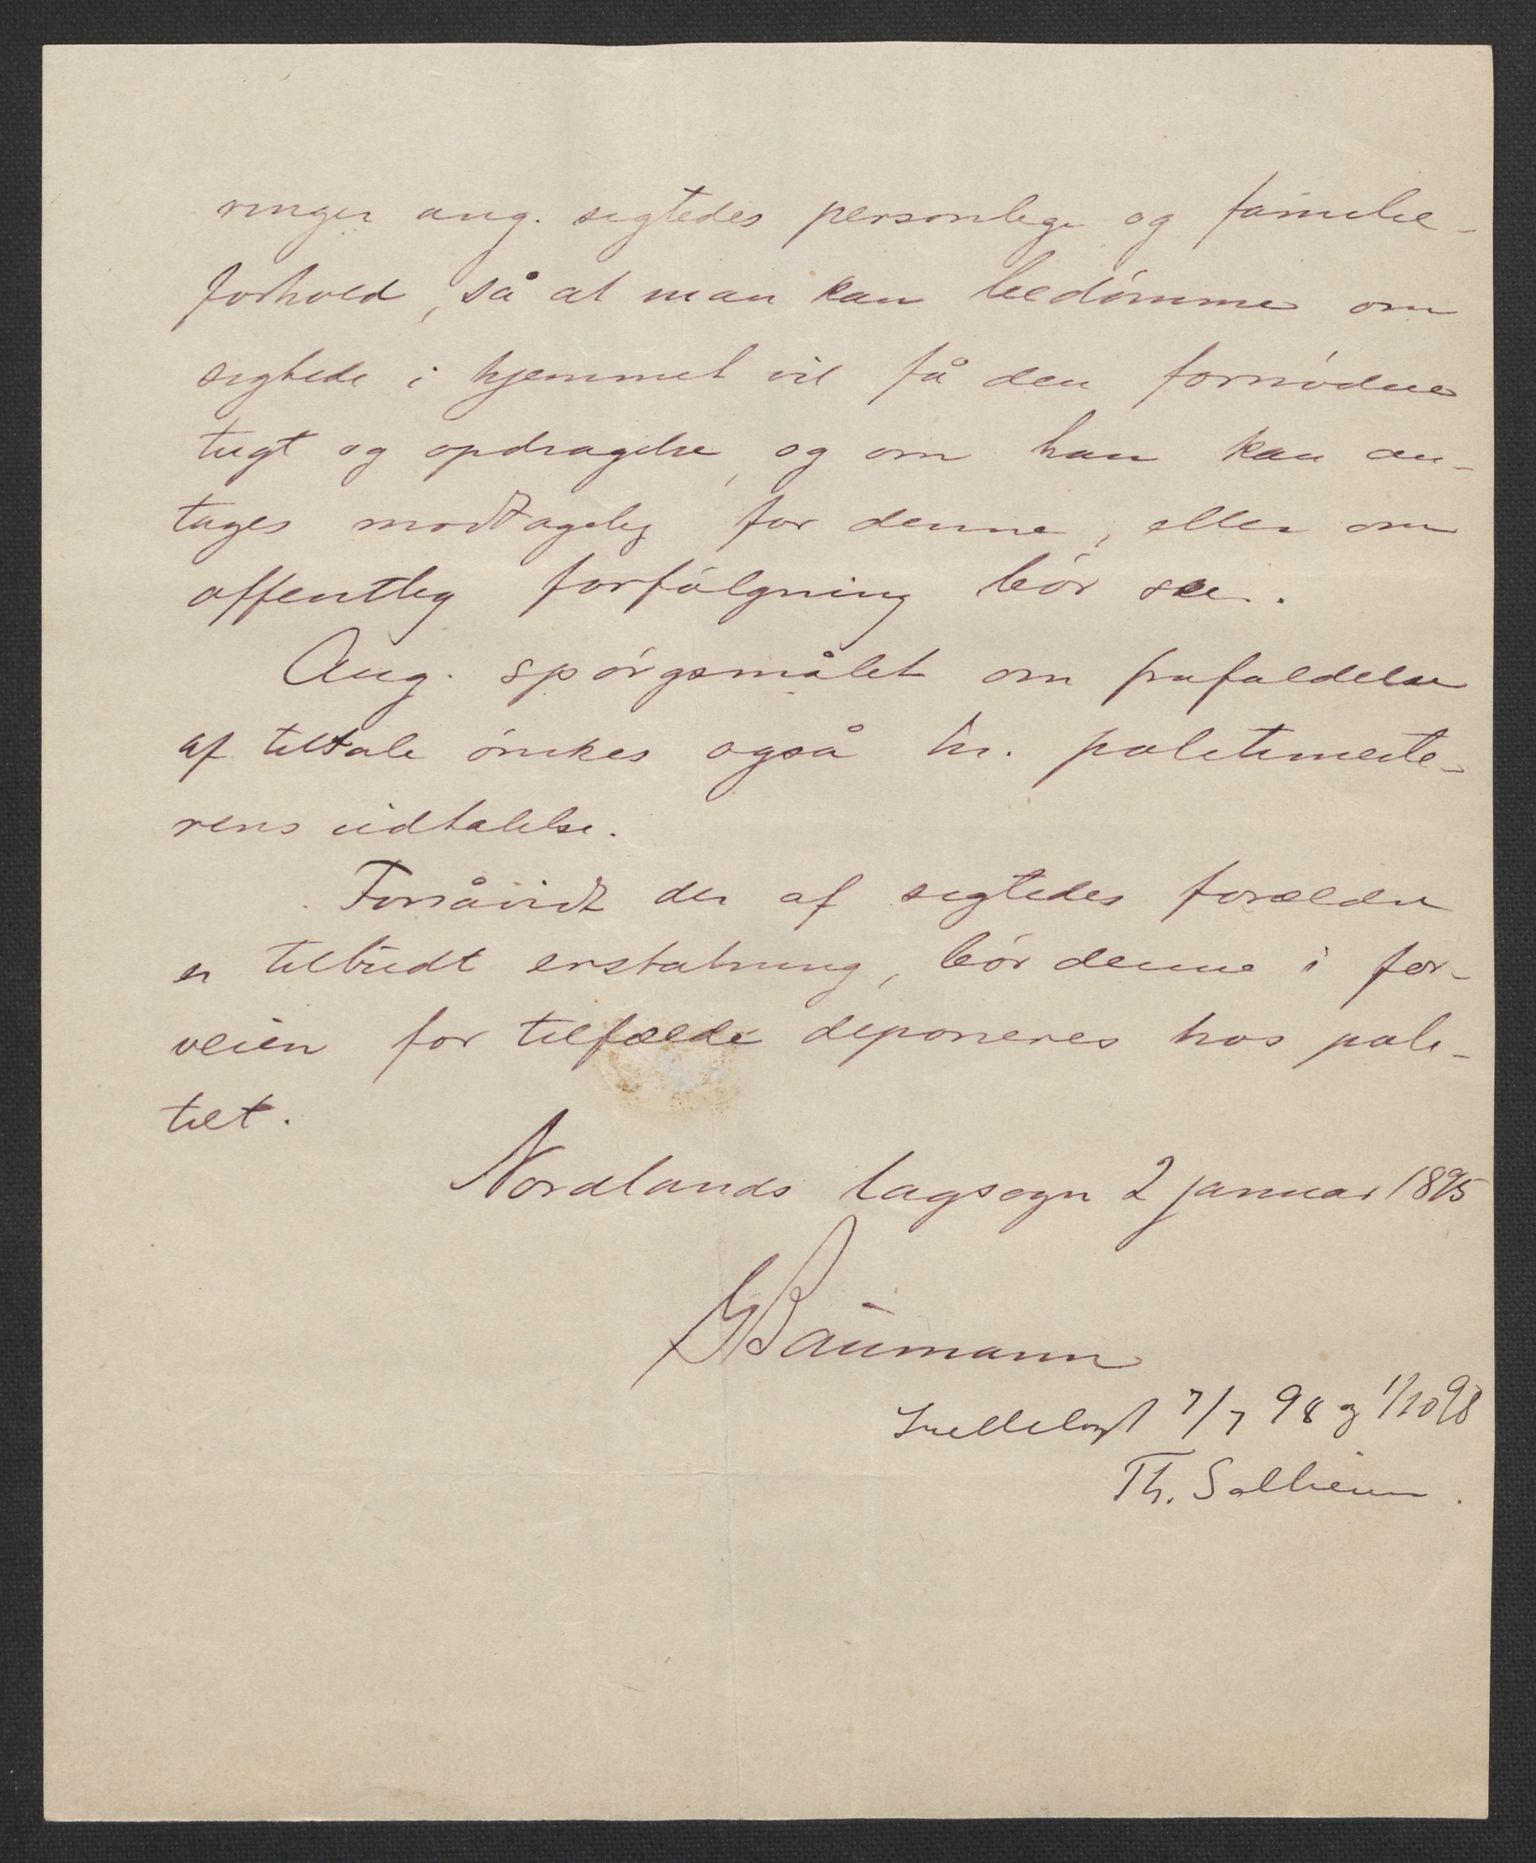 ringer ang. sigtedes personlige og familie-
forhold, så at man kan bedømme om
sigtede i hjemmet vil få den fornødne
tugt og opdragelse, og om han kan an-
tages modtagelig for denne, eller om
offentlig forfølgning bør ske.
Ang. spørgsmålet om frafaldelse
af tiltale ønskes også hr. politimeste-
rens udtalelse.
Forsåvidt der af sigtedes forældre
er tilbudt erstatning, bør denne i for-
veien for tilfælde deponeres hos poli-
tiet.
Nordlands lagsogn 2 januar 1895
GBaumann
7/7 98 og 1/10 98
Th. Solheim.